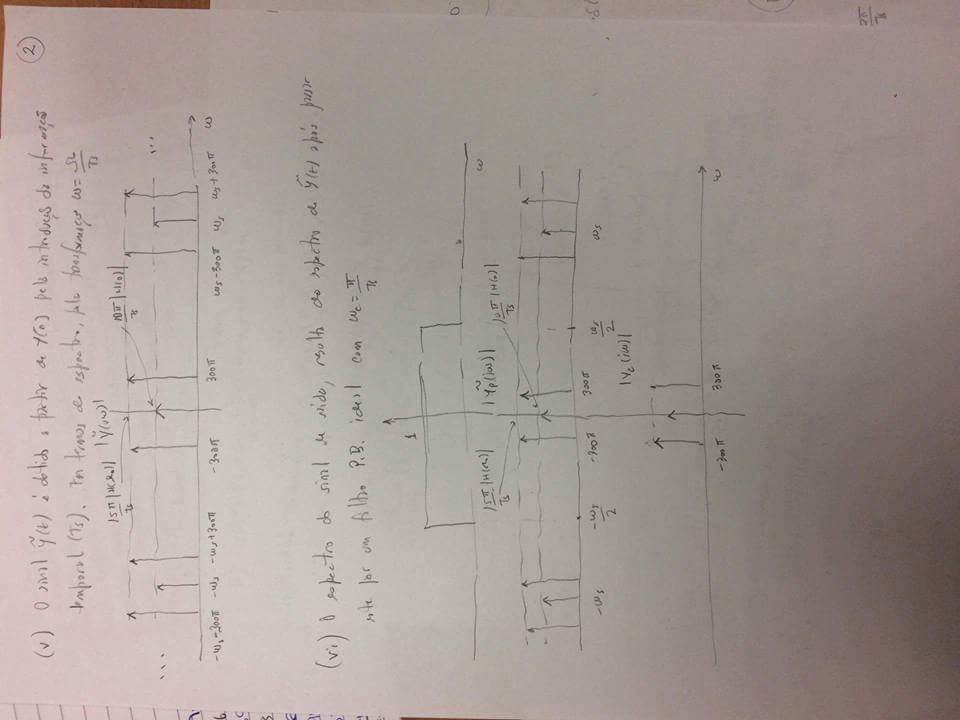 2
(v) O sinal ỹ(t) é obtido a partir de Y(Ω) pela introdução de informação
temporal (Ts). Em termos de espectro, pela transformação ω = Ω/Ts
15π/Ts |H(Ω0)| |Ỹ(jω)| 10π/Ts |H(0)|
... ...
-ωs-300π -ωs -ωs+300π -300π 300π ωs-300π ωs ωs+300π ω
(vi) O espectro do sinal de saída, resulta do espectro de ỹ(t) após passar
este por um filtro P.B. ideal com ωc = π/Ts
1
ω
15π/Ts |H(Ω0)| |Ỹp(jω)| 10π/Ts |H(0)|
-ωs -ωs/2 -300π 300π ωs/2 ωs
|Yc(jω)|
-300π 300π ω
2π/Ts